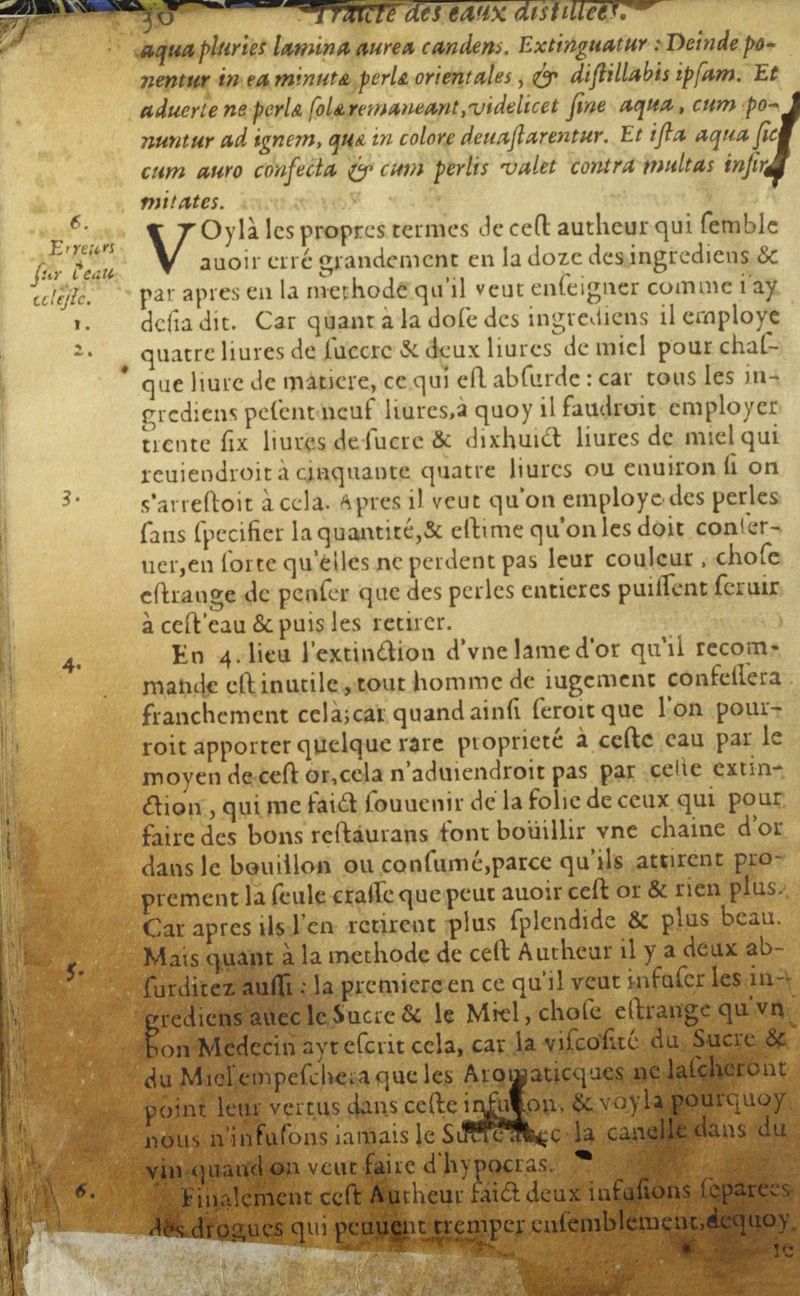 30 Traicté des eaux distillées.
aqua pluries lamina aurea candens. Extinguatur : Deinde po-
nentur in ea minutæ perlæ orientales, & distillabis ipsam. Et
aduerte ne perlæ solæ remaneant, videlicet sine aqua, cum po-
nuntur ad ignem, quæ in colore deuastarentur. Et ista aqua sic
cum auro confecta & cum perlis valet contra multas infir-
mitates.
6.
Erreurs
sur l'eau
celeste.
1.
2.
3.
4.
5.
6.
VOylà les propres termes de cest autheur qui semble
auoir erré grandement en la doze des ingrediens &
par apres en la methode qu'il veut enseigner comme i'ay
desia dit. Car quant à la dose des ingrediens il employe
quatre liures de succre & deux liures de miel pour chas-
que liure de matiere, ce qui est absurde : car tous les in-
grediens pesent neuf liures, à quoy il faudroit employer
trente six liures de sucre & dixhuict liures de miel qui
reuiendroit à cinquante quatre liures ou enuiron si on
s'arrestoit à cela. Apres il veut qu'on employe des perles
sans specifier la quantité, & estime qu'on les doit conser-
uer, en sorte qu'elles ne perdent pas leur couleur, chose
estrange de penser que des perles entieres puissent seruir
à cest'eau & puis les retirer.
En 4. lieu l'extinction d'vne lame d'or qu'il recom-
mande est inutile, tout homme de iugement confessera
franchement cela; car quand ainsi seroit que l'on pour-
roit apporter quelque rare proprieté à ceste eau par le
moyen de cest or, cela n'aduiendroit pas par ceste extin-
ction, qui me faict souuenir de la folie de ceux qui pour
faire des bons restaurans font boüillir vne chaine d'or
dans le bouillon ou consumé, parce qu'ils attirent pro-
prement la seule crasse que peut auoir cest or & rien plus.
Car apres ils l'en retirent plus splendide & plus beau.
Mais quant à la methode de cest Autheur il y a deux ab-
surditez aussi : la premiere en ce qu'il veut infuser les in-
grediens auec le Sucre & le Miel, chose estrange qu'vn
bon Medecin ayt escrit cela, car la viscosité du Sucre &
du Miel empeschera que les Aromaticques ne lascheront
point leur vertus dans ceste infusion, & voyla pourquoy
nous n'infusons iamais le Sucre auec la canelle dans du
vin quand on veut faire d'hypocras.
Finalement cest Autheur faict deux infusions separees
des drogues qui peuuent tremper ensemblement, dequoy
ie